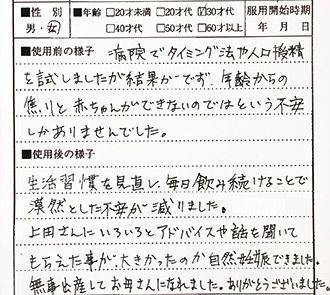 ■性別 ■年齢 □20才未満 □20才代 ☑30才代 服用開始時期
男・女 □40才代 □50才代 □60才以上 年 月 日
■使用前の様子 病院でタイミング法や人口授精
を試しましたが結果がでず、年齢からの
焦りと赤ちゃんができないのではという不安
しかありませんでした。
■使用後の様子
生活習慣を見直し、毎日飲み続けることで
漠然とした不安が減りました。
上田さんにいろいろとアドバイスや話を聞いて
もらえた事が、大きかったのか自然妊娠できました。
無事出産してお母さんになれました。ありがとうございました。